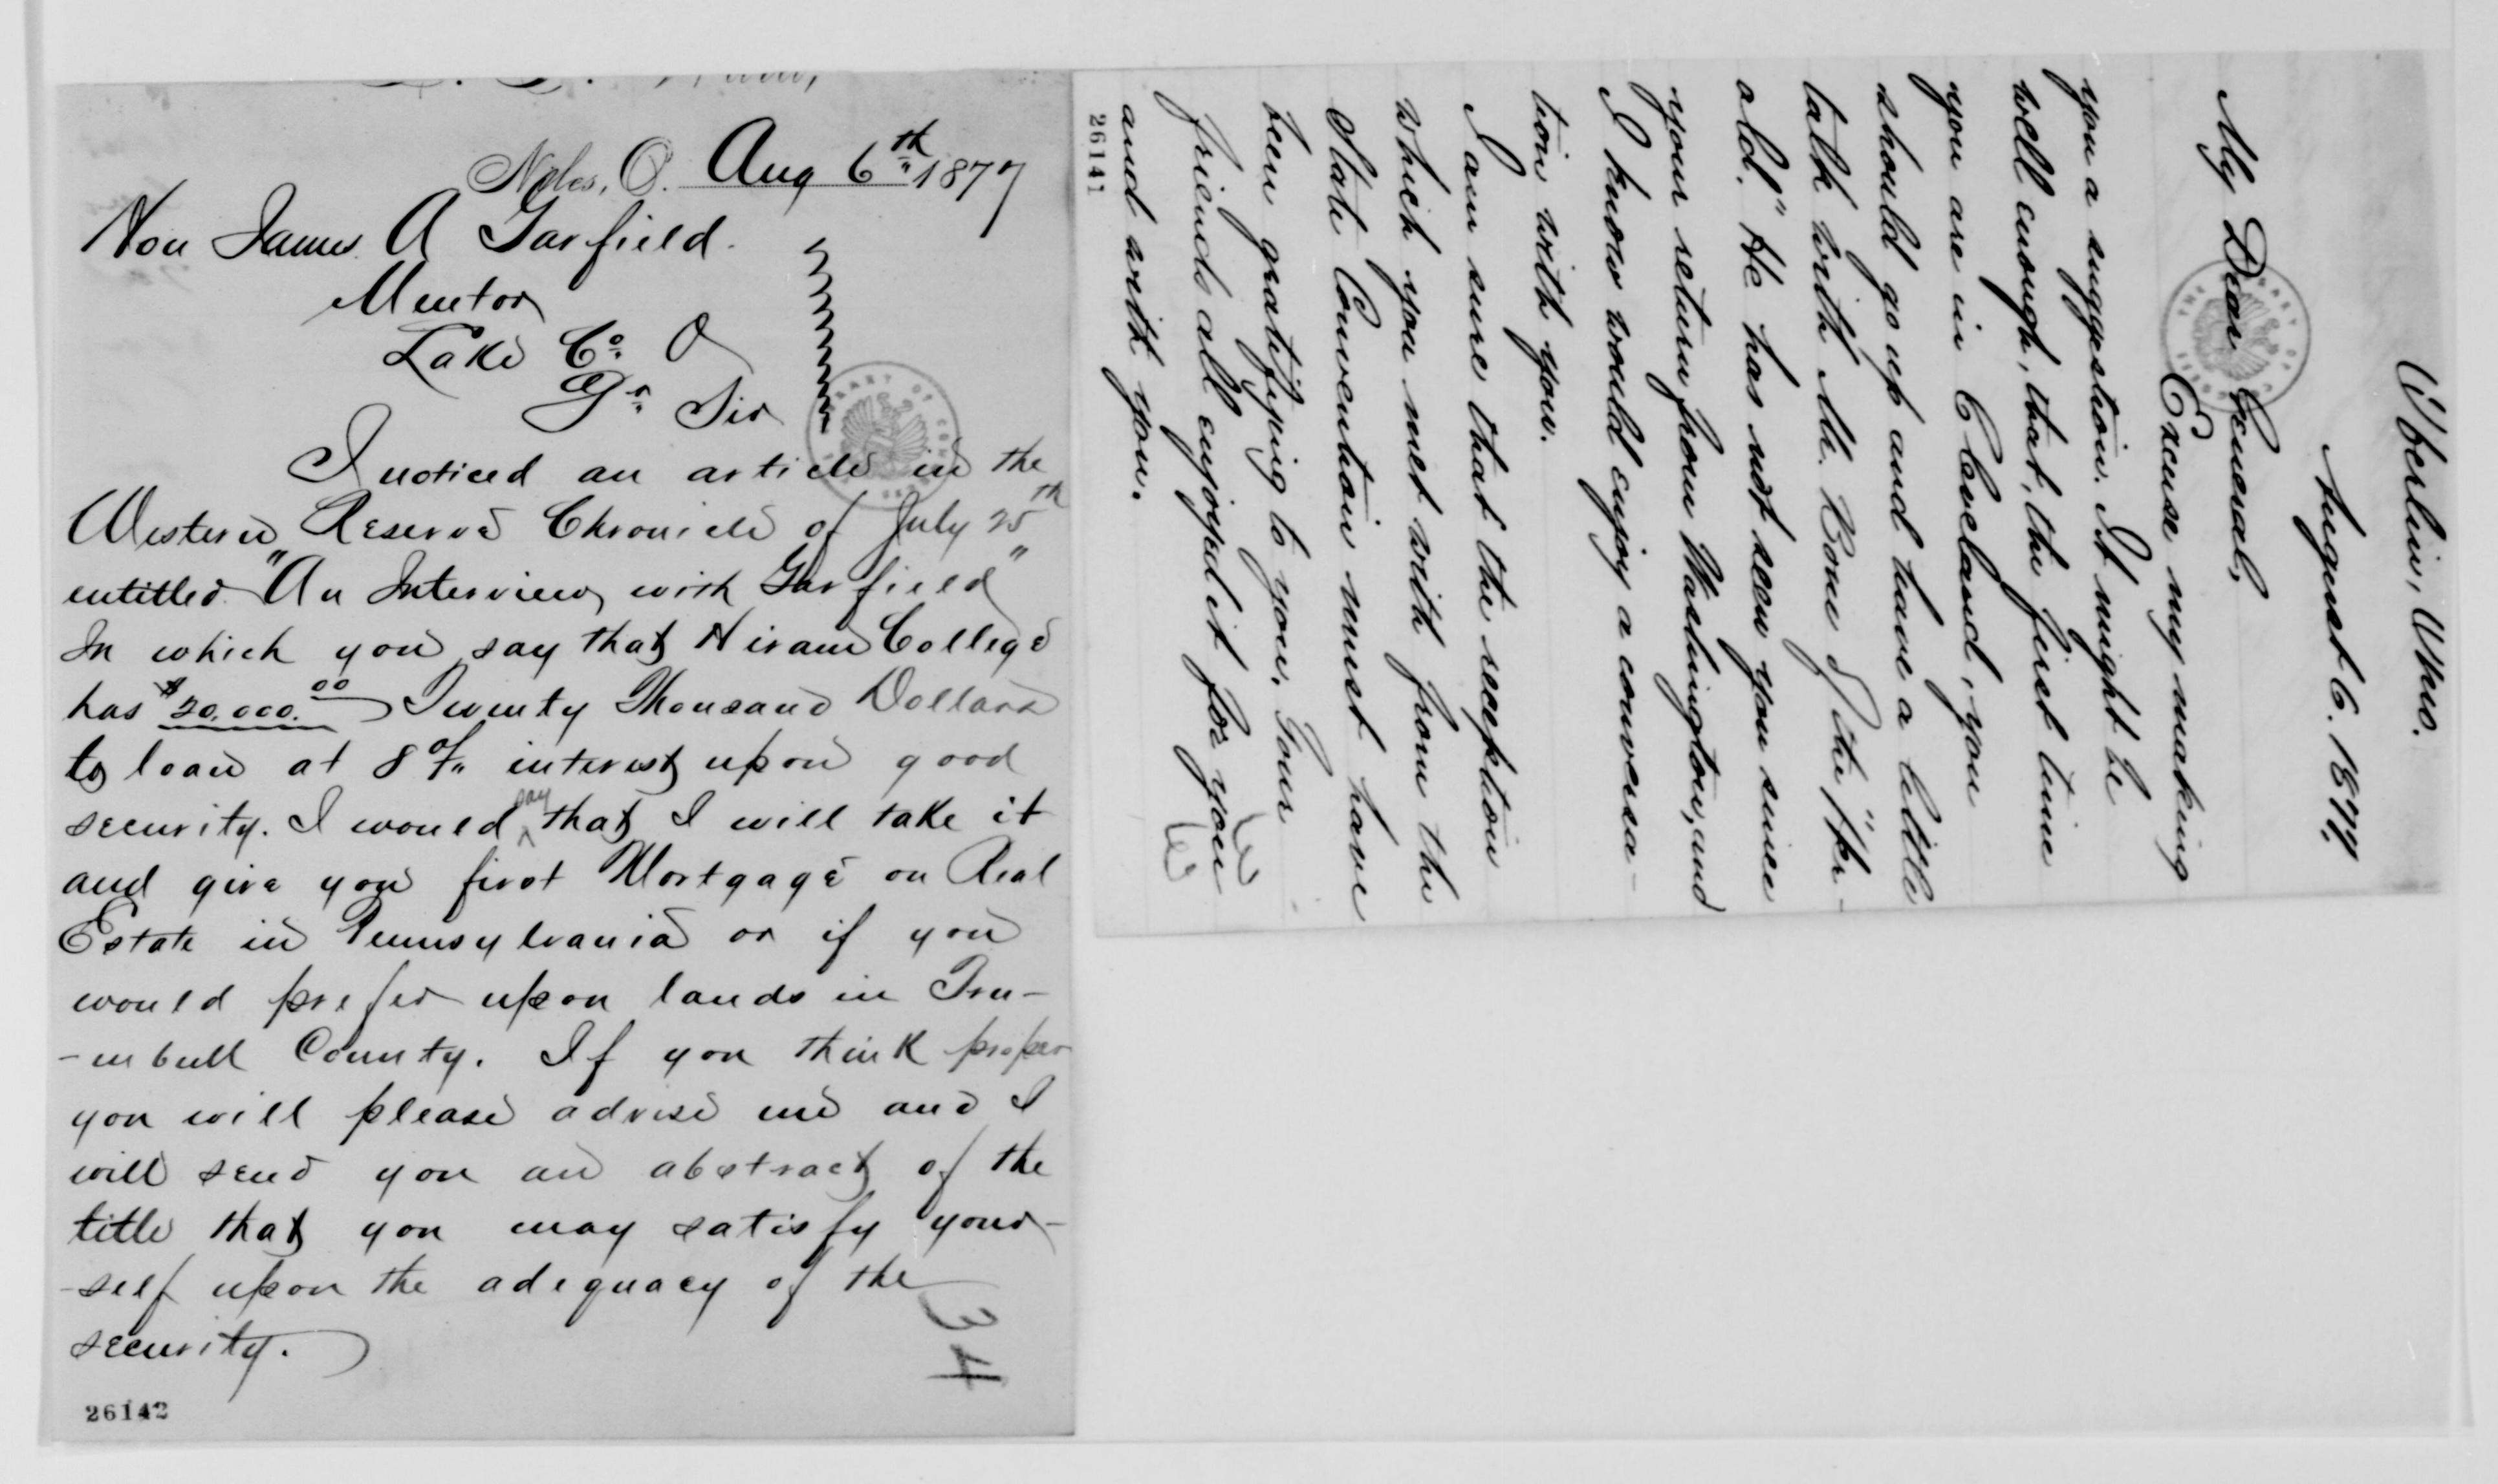 Niles, O. Aug 6th 1877
Hon James A Garfield.
Mentor
Lake Co. O
Dr. Sir
I noticed an article in the
Western Reserve Chronicle of July 25th
entitled "An Interview with Garfield"
In which you say that Hiram College
has $20,000.00 Twenty Thousand Dollars
to loan at 8% interest upon good
security. I would say that I will take it
and give you first Mortgage on Real
Estate in Pennsylvania or if you
would prefer upon lands in Tru-
-mbull County. If you think proper
you will please advise me and I
will send you an abstract of the
title that you may satisfy your-
-self upon the adequacy of the
security.
34
26142
Oberlin, Ohio.
August 6. 1877.
My Dear General,
Excuse my making
you a suggestion. It might be
well enough, that, the first time
you are in Cleveland, you
should go up and have a little
talk with Mr. Bone of the "Her-
ald." He has not seen you since
your return from Washington, and
I know would enjoy a conversa-
tion with you.
I am sure that the reception
which you met with from the
State Convention must have
been gratifying to you. Your
friends all enjoyed it for you
and with you.
26141
THE LIBRARY OF CONGRESS
LIBRARY OF CONGRESS